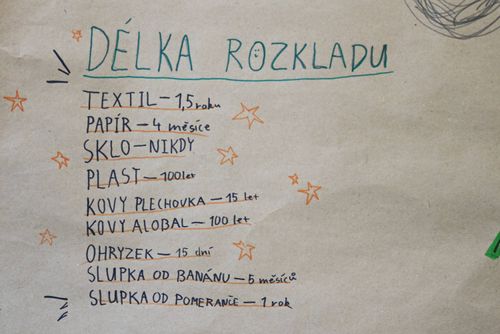 DÉLKA ROZKLADU
TEXTIL – 1,5 roku
PAPÍR – 4 měsíce
SKLO – NIKDY
PLAST – 100 let
KOVY PLECHOVKA – 15 let
KOVY ALOBAL – 100 let
OHRYZEK – 15 dní
SLUPKA OD BANÁNU – 5 měsíců
SLUPKA OD POMERANČE – 1 rok